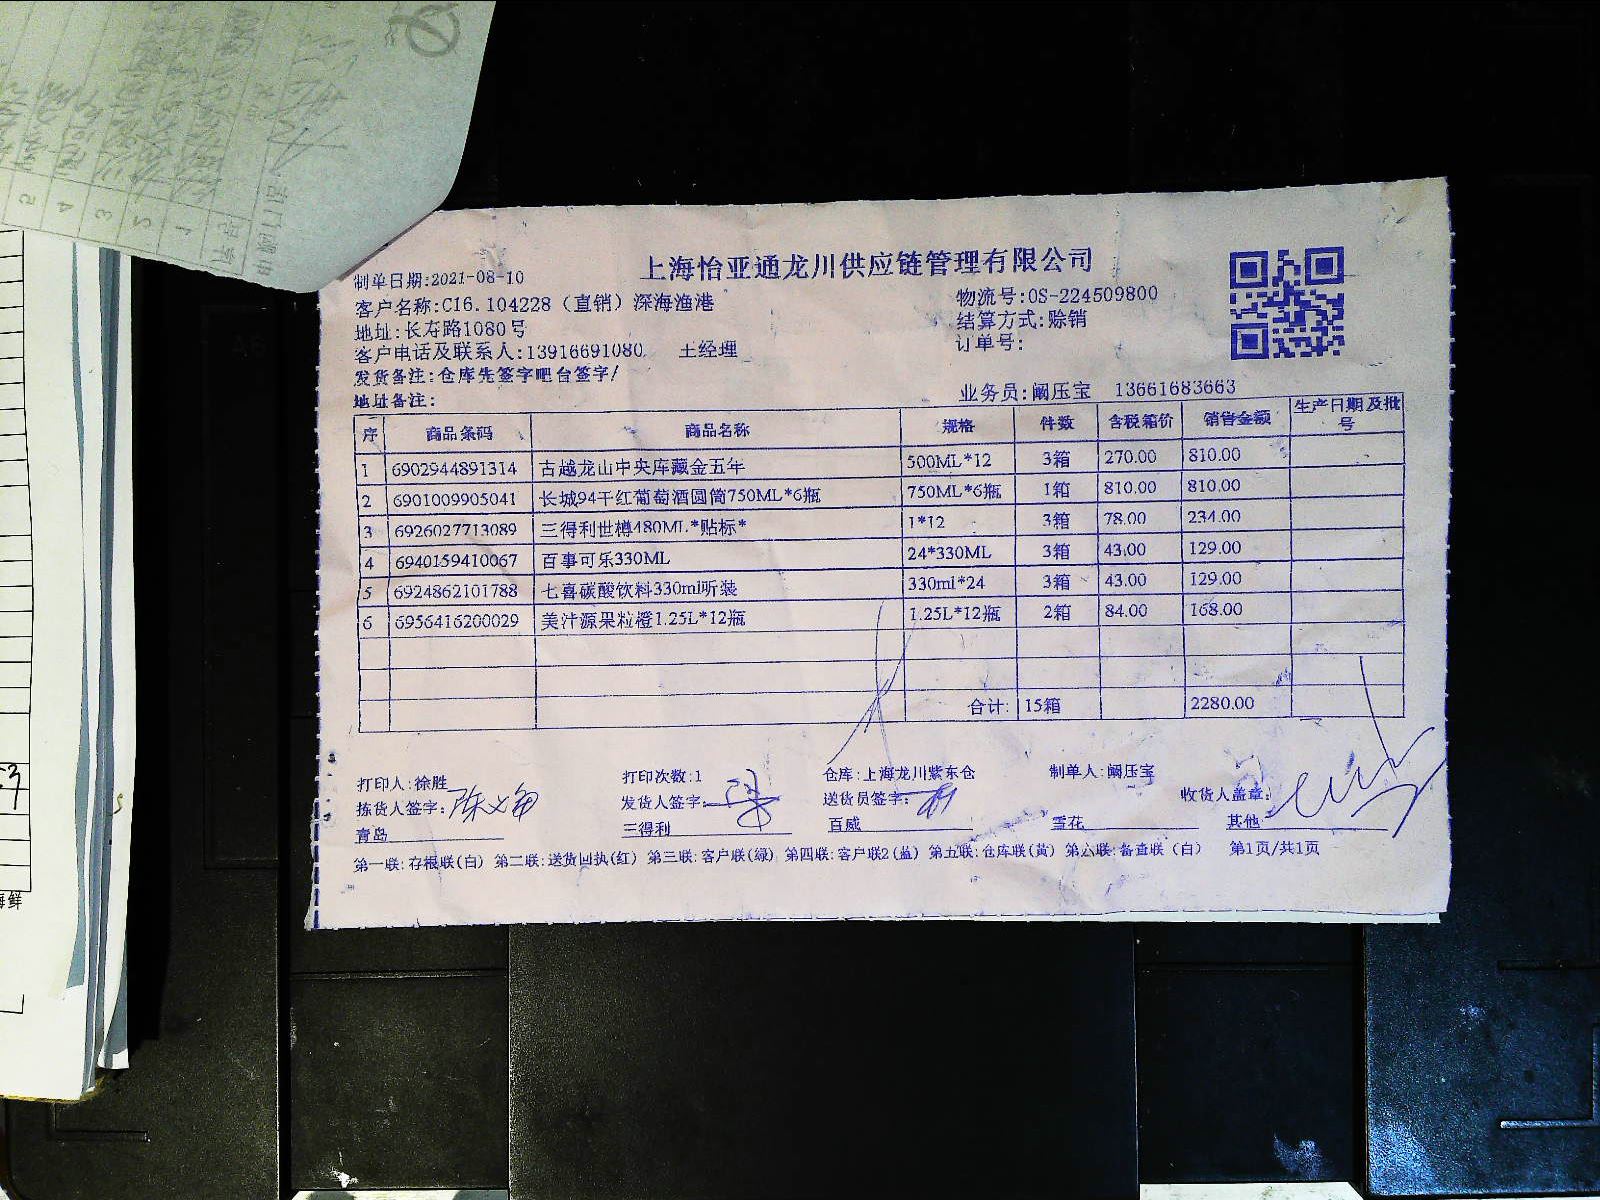 上海怡亚通龙川供应链管理有限公司
制单日期:2021-08-10
客户名称:C16.104228（直销）深海渔港 物流号:OS-224509800
地址:长寿路1080号 结算方式:赊销
客户电话及联系人:13916691080 王经理 订单号:
发货备注:仓库先签字吧台签字/
地址备注: 业务员:阚压宝 13661683663
序 商品条码 商品名称 规格 件数 含税箱价 销售金额 生产日期及批号
1 6902944891314 古越龙山中央库藏金五年 500ML*12 3箱 270.00 810.00
2 6901009905041 长城94干红葡萄酒圆筒750ML*6瓶 750ML*6瓶 1箱 810.00 810.00
3 6926027713089 三得利世樽480ML*贴标* 1*12 3箱 78.00 234.00
4 6940159410067 百事可乐330ML 24*330ML 3箱 43.00 129.00
5 6924862101788 七喜碳酸饮料330ml听装 330ml*24 3箱 43.00 129.00
6 6956416200029 美汁源果粒橙1.25L*12瓶 1.25L*12瓶 2箱 84.00 168.00
合计: 15箱 2280.00
打印人:徐胜 打印次数:1 仓库:上海龙川紫东仓 制单人:阚压宝
拣货人签字: 发货人签字: 送货员签字: 收货人盖章:
青岛 三得利 百威 雪花 其他
第一联:存根联(白) 第二联:送货回执(红) 第三联:客户联(绿) 第四联:客户联2(蓝) 第五联:仓库联(黄) 第六联:备查联（白） 第1页/共1页
海鲜